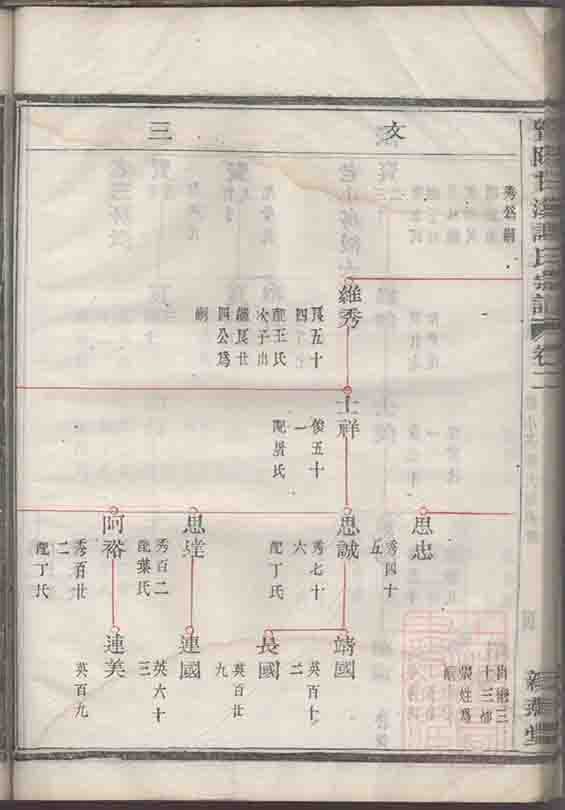 文
三
秀公嗣
維秀
艮五十
四
配王氏
次子出
繼艮廿
四公爲
嗣
士祥
俊五十
一
配屠氏
思忠
秀四十
五
思誠
秀七十
六
配丁氏
思達
秀百二
配葉氏
阿裕
秀百廿
二
配丁氏
十三
張姓爲
嗣
靖國
英百十
二
長國
英百廿
九
連國
英六十
三
連美
英百九
氏宗譜
卷二